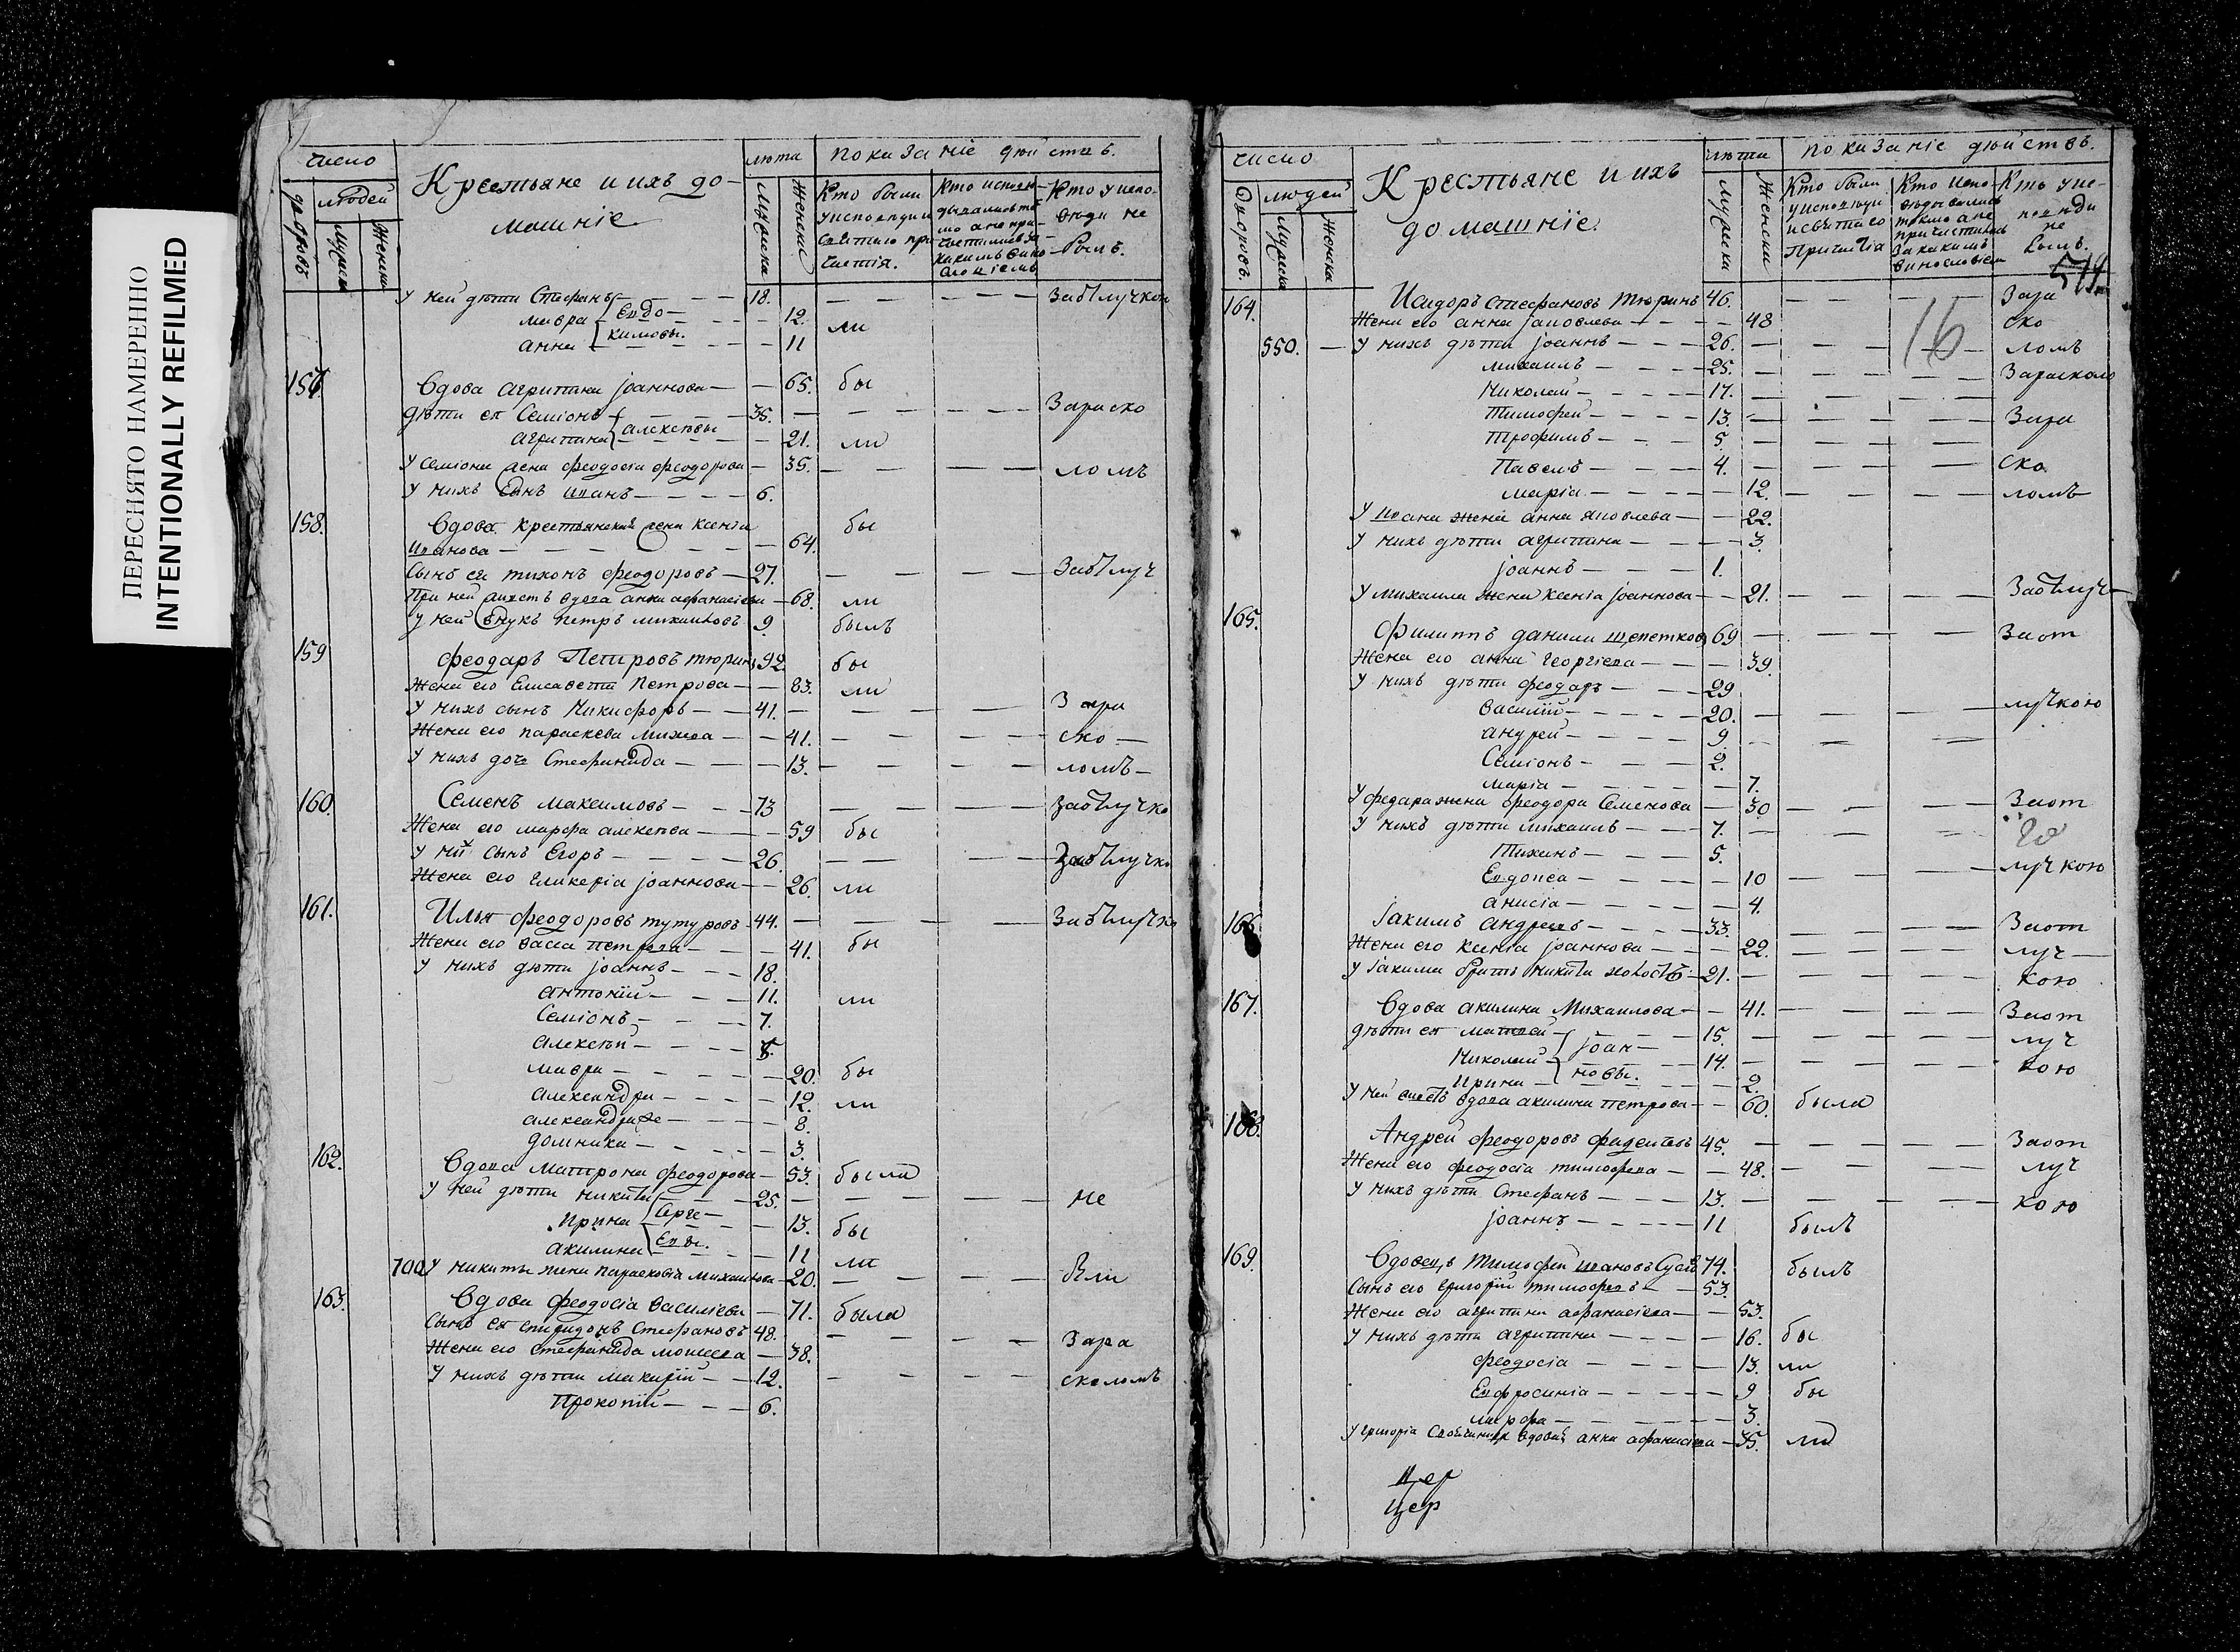 ПЕРЕСНЯТО НАМЕРЕННО
INTENTIONALLY REFILMED
число
дворовъ
людей
мужеска
женска
Крестьяне и ихъ до-
машніе
лѣта
мужеска
женска
показаніе дѣйствъ.
Кто были у исповеди и святаго причастія.
Кто исповедывались токмо а не причастились и за какимъ винословіемъ
Кто у исповѣди не былъ.
У ней дѣти Стефанъ Евдо- 18. Заотлучкою
мавра кимовы. 12. ли
анна 11
157. Вдова агрипина іоаннова 65. бы
дѣти ея Семіонъ алексѣевы 35. Зараско
агрипина 21. ли
У Семіона жена феодосіа феодорова 35. ломъ
У нихъ сынъ иванъ 6.
158. Вдова крестьянская жена ксеніа бы
иванова 64.
Сынъ ея тихонъ феодоровъ 27. Заотлуч
При ней вдова анна афанасіева 68. ли
У ней внукъ петръ михаиловъ 9. былъ
159 феодаръ Петровъ тюринъ 92 бы
Жена его Елисавета Петрова 83. ли
У нихъ сынъ Никифоръ 41. Зара
Жена его параскева 41. ско
У нихъ дочь Стефанида 13. ломъ
160. Семенъ максимовъ 73 Заотлучко
Жена его марфа алексѣева 59 бы
У них сынъ Егоръ 26. Заотлучко
Жена его гликеріа іоаннова 26. ли
161. Илья феодоровъ тутуровъ 44. Заотлучко
Жена его васса петрова 41. бы
У нихъ дѣти іоаннъ 18.
антоній 11. ли
Семіонъ 7.
алексѣй
мавра 20. бы
александра 12. ли
александра же 8.
домника 3.
162. Вдова Матрона феодорова 53. была
У ней дѣти никита Серге- 25. не
ирина евы. 13. бы
акилина 11 ли
700 У никиты жена параскевіа михаилова 20. были
163. Вдова феодосіа василіева 71. была
Сынъ ея спиридонъ Стефановъ 48. Зара
Жена его Стефанида 38.
У нихъ дѣти макарій 12. сколомъ
Прокопій 6.
число
Дворовъ.
людей
Мужеска
Женска
Крестьяне и ихъ
домашніе.
лѣта
Мужеска
Женска
показаніе дѣйствъ.
Кто были у исповеди и святаго Причастіа
Кто исповедывались токмо а не причастились За какимъ винословіемъ
Кто у исповѣди не былъ.
514
16
164. Исидоръ Стефановъ Тюринъ 46. Зара
Жена его анна іаковлева 48 ско
550. У нихъ дѣти іоаннъ 26. ломъ
михаилъ 25. Зарасколо
Николай 17.
Тимофей 13. Зара
Трофимъ 5
Павелъ 4. ско
маріа 12. ломъ
У ивана жена анна яковлева 22.
У нихъ дѣти агрипина 3.
іоаннъ 1.
У михаила жена ксеніа іоаннова 21. Заотлуч
165. Филиппъ данилов щепетковъ 69 Заот
Жена его анна георгіева 39.
У нихъ дѣти феодаръ 29
василій 20. лучкою
андрей 9
Семіонъ 2.
маріа 7.
У федара жена феодора Семенова 30 Заот
20
У нихъ дѣти михаилъ 7.
Тихонъ 5.
Евдокеа 10 лучкою
анисіа 4.
166 Іакимъ андреевъ 33. Заот
Жена его ксеніа іоаннова 22. луч
У іакима братъ никита холостъ 21. кою
167. Вдова акилина Михаилова 41. Заот
дѣти ея матвей іоан- 15. луч
Николай новы. 14. кою
Ирина 2.
У ней вдова акилина петрова 60. была
168. Андрей феодоровъ 45. Заот
Жена его феодосіа тимофеева 48. луч
У нихъ дѣти Стефанъ 13. кою
іоаннъ 11 былъ
169. Вдовецъ Тимофей ивановъ 74. былъ
Сынъ его григорій тимофеевъ 53.
Жена его агрипина афанасіева 53.
У нихъ дѣти агрипина 16. бы
феодосіа 13. ли
Евфросиніа 9 бы
марфа 3.
У григоріа вдова анна афанасіева ла
Цер
Цер